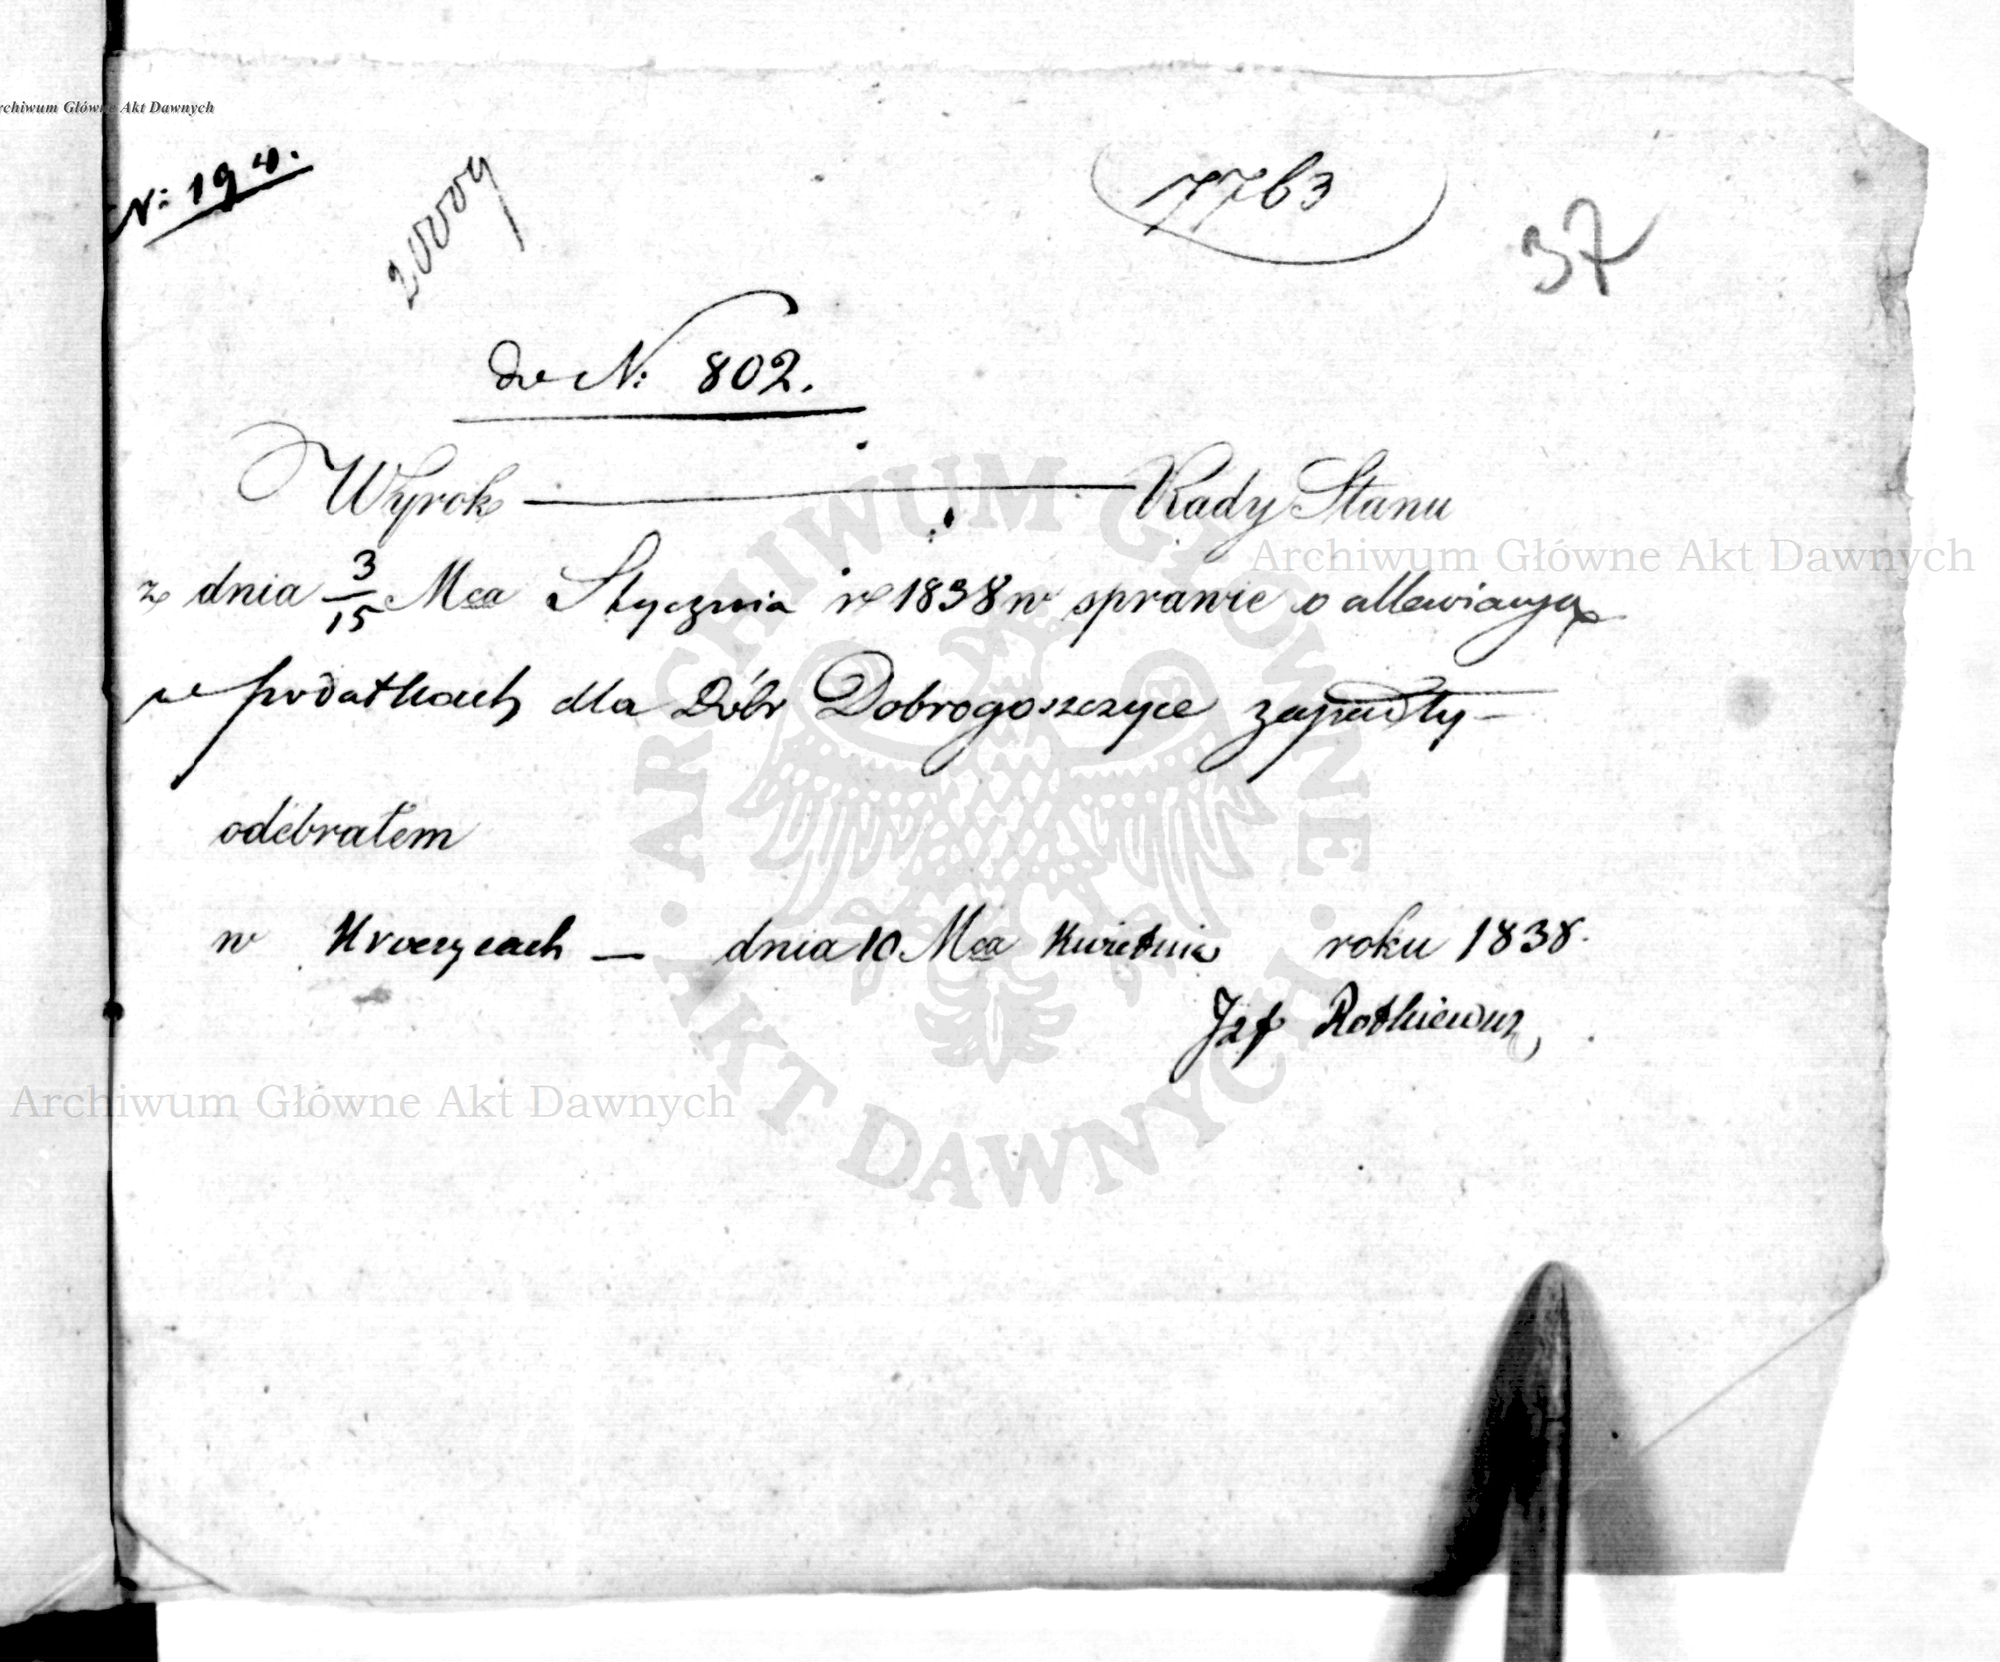 Archiwum Główne Akt Dawnych
N: 190.
20009
7763
37
do N: 802.
Wyrok — Rady Stanu
z dnia 3/15 Mca Stycznia r 1838 w sprawie o allewiacyą
w podatkach dla Dóbr Dobrogoszczyce zapadły —
odebrałem
w Kroczycach — dnia 10 Mca Kwietnia roku 1838.
Jzf Rotkiewicz
Archiwum Główne Akt Dawnych
Archiwum Główne Akt Dawnych
ARCHIWUM GŁÓWNE AKT DAWNYCH